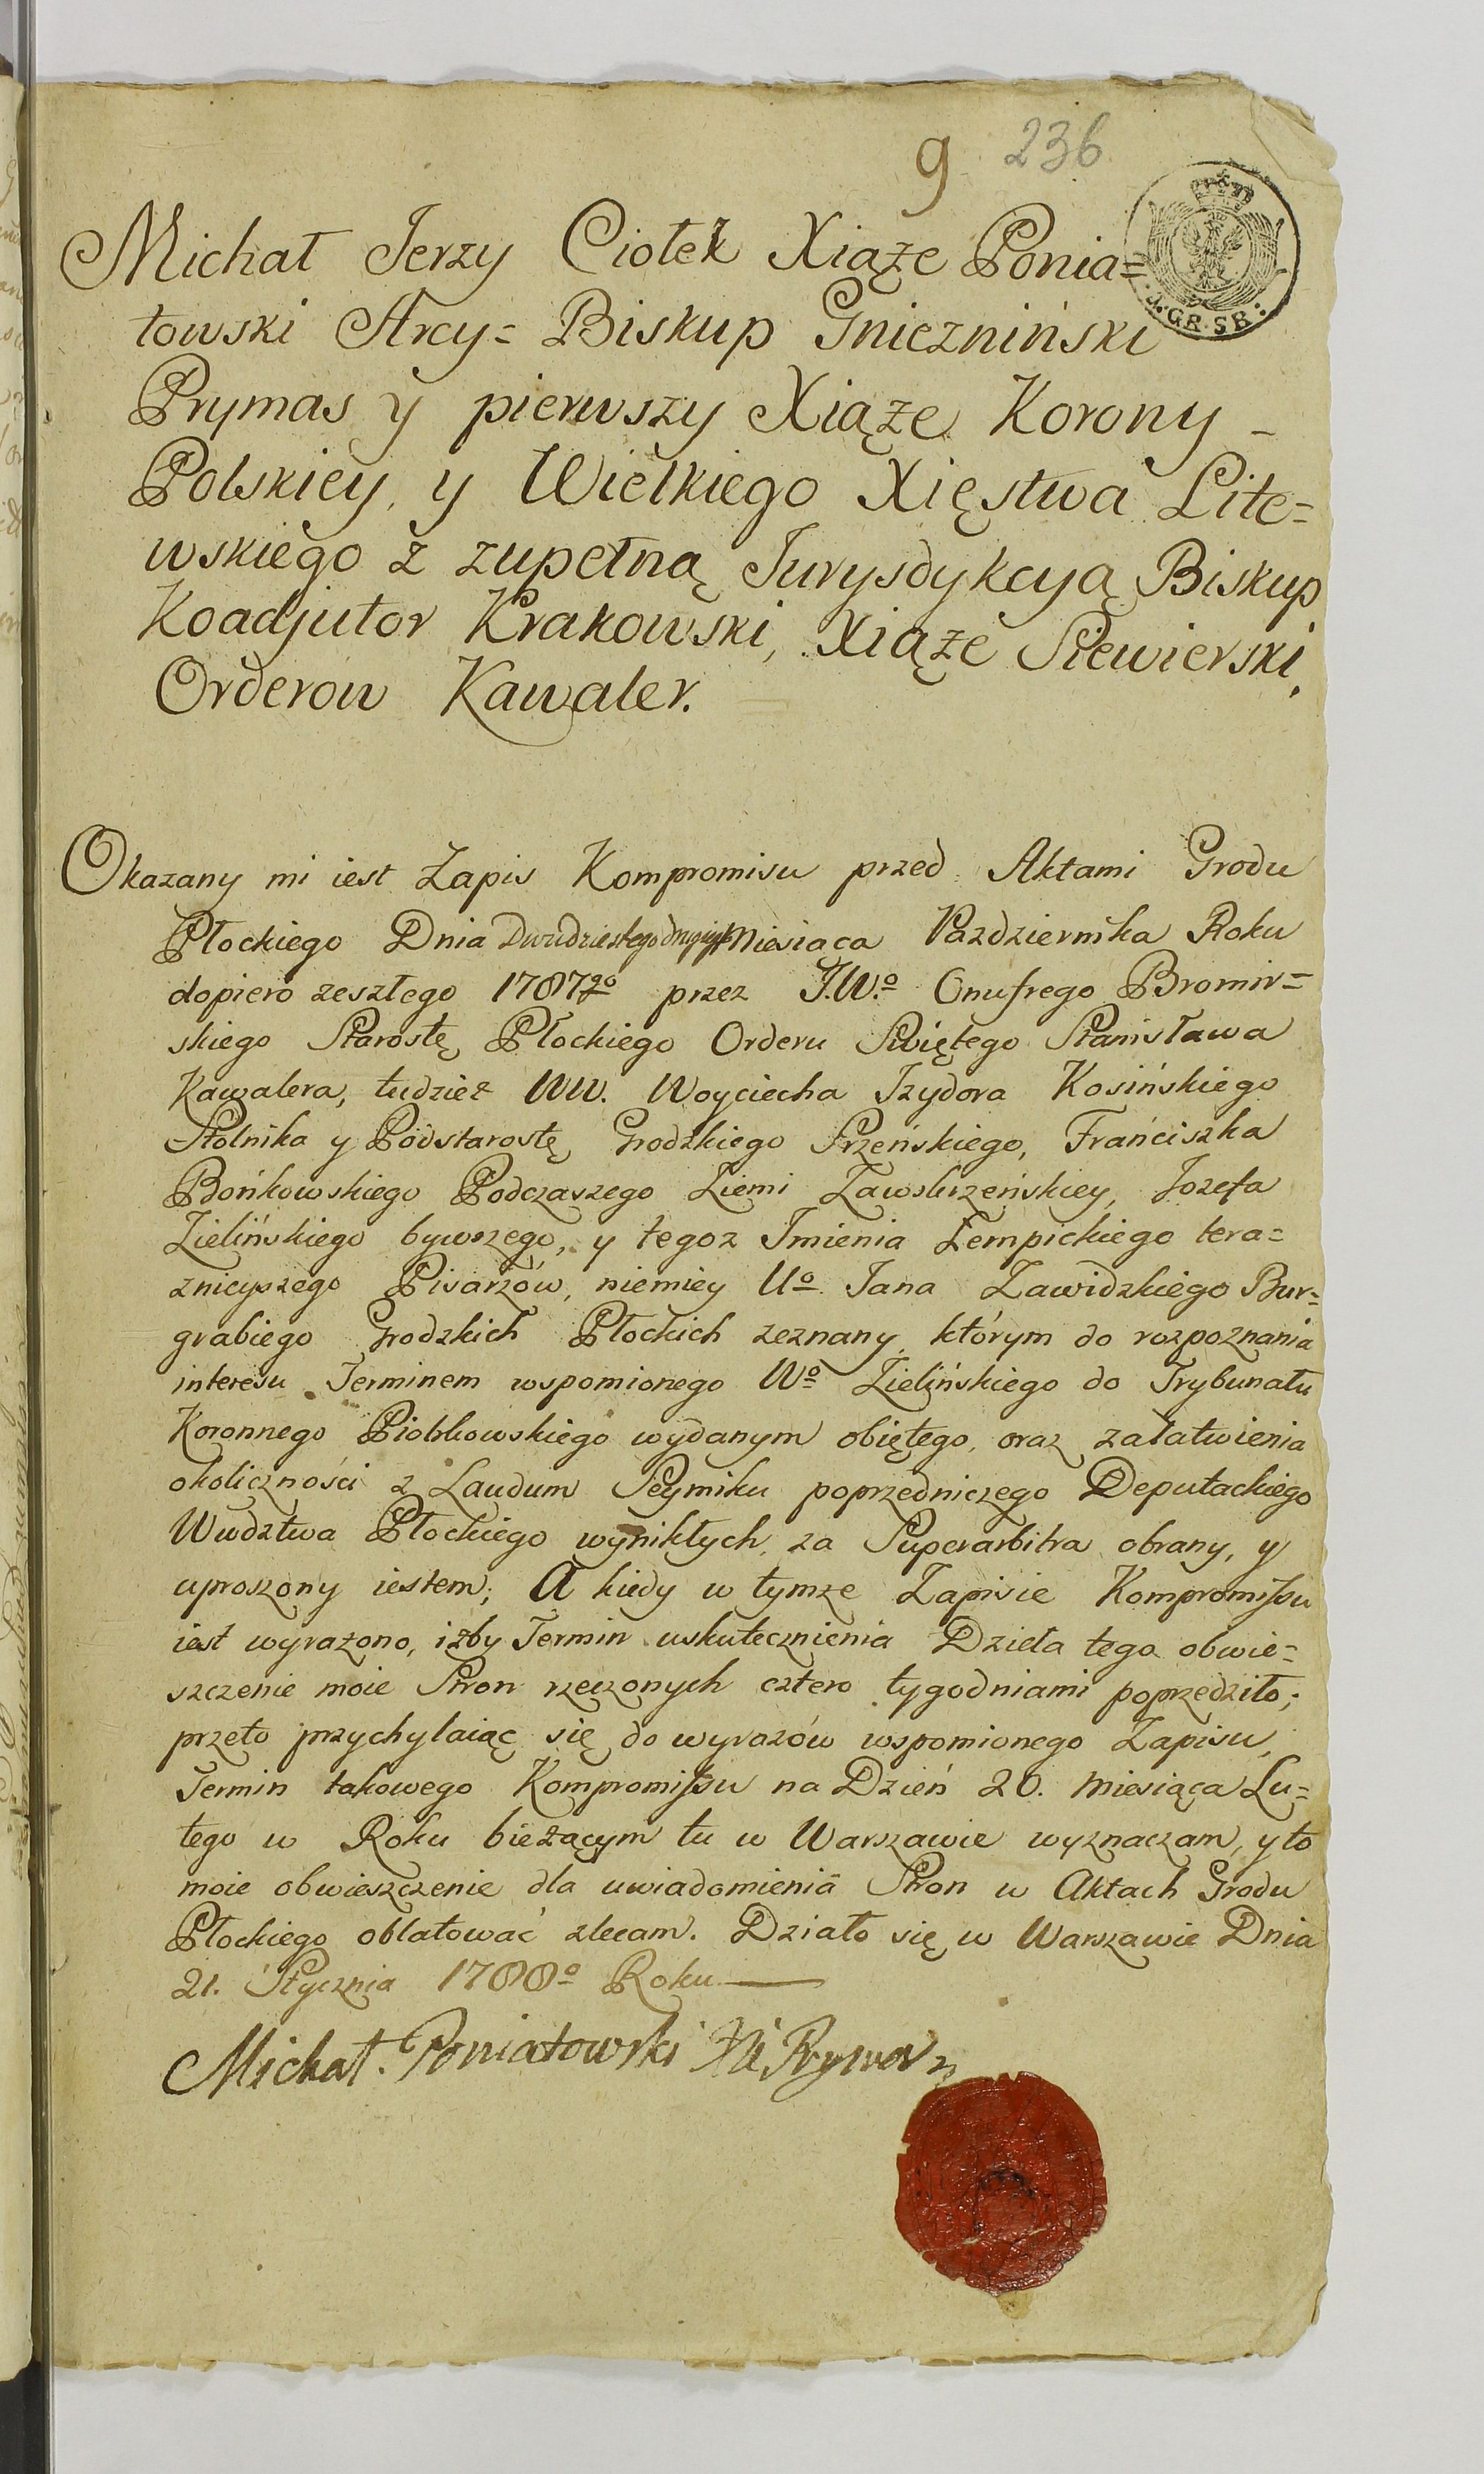 9 236
Michał Jerzy Ciołek Xiąże Ponia=
towski Arcy= Biskup Gniezniński
J. GR. SR.
Prymas y pierwszy Xiąże Korony
Polskiey, y Wielkiego Xięstwa Lite=
wskiego z zupełną Jurysdykcyą Biskup
Koadjutor Krakowski, Xiąże Siewierski,
Orderow Kawaler.
Okazany mi iest Zapis Kompromisu przed Aktami Grodu
Płockiego Dnia Dwudziestego drugiego Miesiąca Pazdziernika Roku
dopiero zeszłego 1787go przez J.W.o Onufrego Bromir=
skiego Starostę Płockiego Orderu Swiętego Stanisława
Kawalera, tudzież WW. Woyciecha Izydora Kosińskiego
Stolnika y Podstarostę Grodzkiego Srzeńskiego, Franciszka
Bońkowskiego Podczaszego Ziemi Zawskrzeńskiey, Jozefa
Zielińskiego bywszego, y tegoz Imienia Łempickiego tera=
znieyszego Pisarzów, niemiey Uo. Jana Zawidzkiego Bur=
grabiego Grodzkich Płockich zeznany, którym do rozpoznania
interesu Terminem wspomionego Wo Zielińskiego do Trybunału
Koronnego Piotrkowskiego wydanym obiętego, oraz załatwienia
okoliczności z Laudum Seymiku poprzedniczego Deputackiego
Wwdztwa Płockiego wynikłych, za Superarbitra obrany, y
uproszony iestem; A kiedy w tymze Zapisie Kompromissu
iest wyrażono, iżby Termin uskutecznienia Dzieła tego obwie=
szczenie moie Stron rzeczonych cztero tygodniami poprzedziło;
przeto przychylaiąc się do wyrazów wspomionego Zapisu,
Termin takowego Kompromissu na Dzień 20. Miesiąca Lu=
tego w Roku bieżącym tu w Warszawie wyznaczam, y to
moie obwieszczenie dla uwiadomienia Stron w Aktach Grodu
Płockiego oblatować zlecam. Działo się w Warszawie Dnia
21. Stycznia 1788o Roku
Michał Poniatowski Prymas